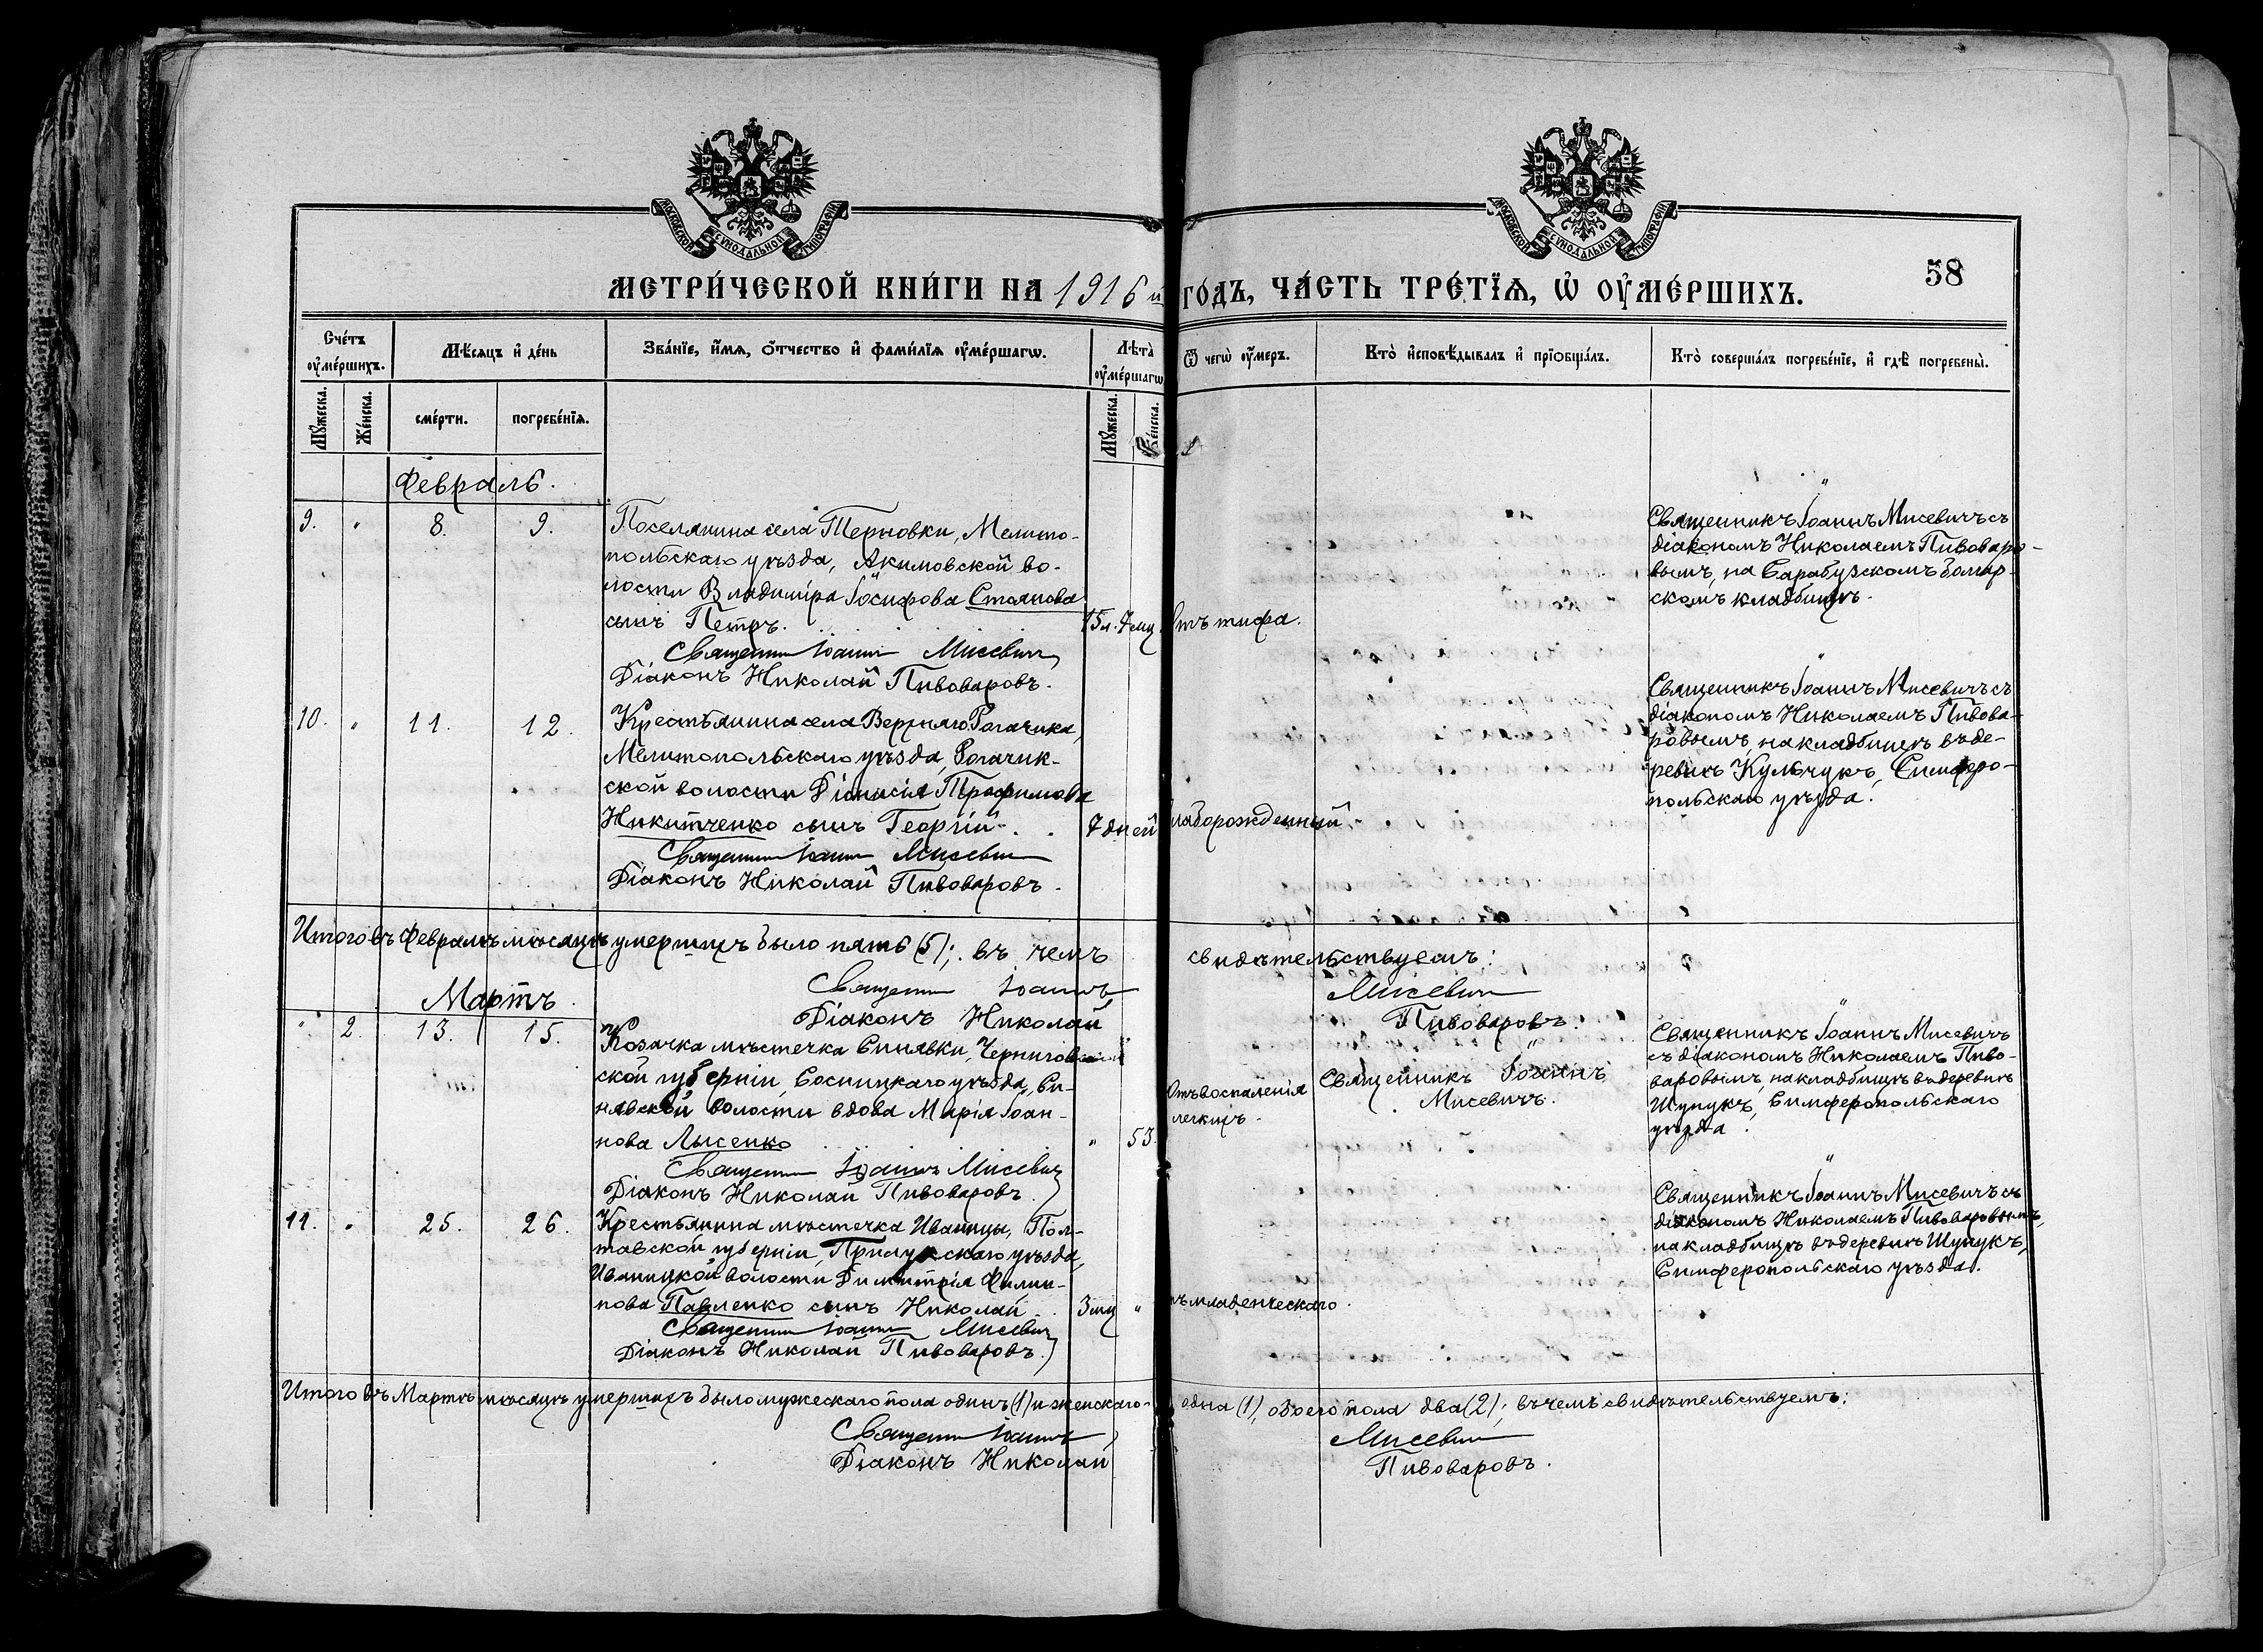 МОСКОВСКОЙ СУНОДАЛЬНОЙ ТИПОГРАФІИ
МОСКОВСКОЙ СУНОДАЛЬНОЙ ТИПОГРАФІИ
58
МЕТРИ́ЧЕСКОЙ КНИ́ГИ НА 1916 й ГО́ДЪ, ЧА́СТЬ ТРЕ́ТЇѦ, Ѡ҆ ОУ҆МЕ́РШИХЪ.
Сче́тъ оу҆ме́ршихъ.
Мѣ́сѧцъ и҆ де́нь
Зва́нїе, и҆́мѧ, о҆́тчество и҆ фами́лїѧ оу҆ме́ршагѡ.
Лѣ̀та оу҆ме́ршагѡ
Ѿ чегѡ̀ оу҆́меръ.
Кто̀ и҆сповѣ́дывалъ и҆ прїѡбща́лъ.
Кто̀ соверша́лъ погребе́нїе, и҆ гдѣ̀ погребены̀.
Мꙋ́жеска.
Же́нска.
сме́рти.
погребе́нїѧ.
Мꙋ́жеска.
Же́нска.
Февраль.
9. " 8. 9.
Поселянина села Терновки, Мелито-
польскаго уѣзда, Акимовской во-
лости Владиміра Іосифова Стоянова
сынъ Петръ. 15 л. 7 мц
Отъ тифа.
Священникъ Іоаннъ Мисевичъ
Діаконъ Николай Пивоваровъ.
Священникъ Іоаннъ Мисевичъ съ
діакономъ Николаемъ Пивоваро-
вымъ, на Сарабузскомъ
скомъ кладбищѣ.
10. " 11. 12.
Крестьянина села Верхняго Рогачика,
Мелитопольскаго уѣзда, Рогачик-
ской волости Діонисія Трофимова
Никитченко сынъ Георгій. 7 дней
лаборожденный
Священникъ Іоаннъ Мисевичъ
Діаконъ Николай Пивоваровъ.
Священникъ Іоаннъ Мисевичъ съ
діакономъ Николаемъ Пивова-
ровымъ, на кладбищѣ въ де-
ревнѣ Кульчукъ, Симферо-
польскаго уѣзда.
Итого въ Февралѣ мѣсяцѣ умершихъ было пять (5); въ чемъ свидѣтельствуемъ:
Священникъ Іоаннъ Мисевичъ
Діаконъ Николай Пивоваровъ.
Мартъ.
" 2. 13. 15.
Козачка мѣстечка Синявки, Чернигов-
ской губерніи, Сосницкаго уѣзда, Си-
нявской волости вдова Марія Іоан-
нова Лысенко " 53.
Отъ воспаленія
легкихъ.
Священникъ Іоаннъ
Мисевичъ.
Священникъ Іоаннъ Мисевичъ
Діаконъ Николай Пивоваровъ.
Священникъ Іоаннъ Мисевичъ
съ діакономъ Николаемъ Пиво-
варовымъ, на кладбищѣ въ деревнѣ
Шунукъ, Симферопольскаго
уѣзда.
11. " 25. 26.
Крестьянина мѣстечка Иваницы, Пол-
тавской губерніи, Прилукскаго уѣзда,
Иваницкой волости, Димитрія Филип-
пова Павленко сынъ Николай. 3 мц "
ъ младенческаго.
Священникъ Іоаннъ Мисевичъ
Діаконъ Николай Пивоваровъ.
Священникъ Іоаннъ Мисевичъ съ
діакономъ Николаемъ Пивоваровымъ,
на кладбищѣ въ деревнѣ Шунукъ,
Симферопольскаго уѣзда.
Итого въ Мартѣ мѣсяцѣ умершихъ было мужескаго пола одинъ (1) и женскаго - одна (1), обоего пола два (2); въ чемъ свидѣтельствуемъ:
Священникъ Іоаннъ Мисевичъ
Діаконъ Николай Пивоваровъ.